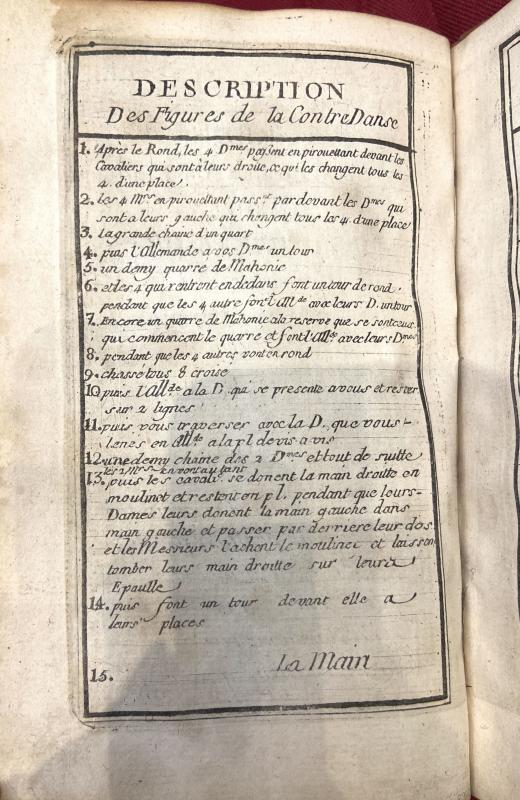 DESCRIPTION
Des Figures de la ContreDanse
1. Après le Rond, les 4 Dmes passent en pirouettant devant les
Cavaliers qui sont a leurs droite, ce qui les changent tous les
4. d'une place.
2. les 4 Mrs en pirouettant passnt par devant les Dmes qui
sont a leurs gauche qui changent tous les 4. d'une place
3. la grande chaine d'un quart
4. puis l'Allemande a vos Dmes un tour
5. un demy quarre de Mahonie
6. et les 4 qui rentrent en dedans font un tour de rond,
pendant que les 4 autre font l'Allde avec leurs D. un tour
7. Encore un quarre de Mahonie a la reserve que se sont ceux
qui commencent le quarre et font l'Allde avec leurs Dmes
8. pendant que les 4 autres vont en rond
9. chassé tous 8 croise
10 puis l'Allde a la D. qui se presente a vous et rester
sur 2 lignes
11. puis vous traverses avec la D. que vous
tenes en Allde a la pl de vis a vis
12. une demy chaine des 2 Dmes et tout de suitte
les 2 Mrs en font autans
13. puis les cavali. se donent la main droitte en
moulinet et restent en pl. pendant que leurs-
Dames leurs donent la main gauche dans
main gauche et passer par derriere leur dos
et les Messieurs lachent le moulinet et laisson
tomber leurs main droitte sur leurs
Epaulle
14. puis font un tour devant elle a
leurs places
15. La Main